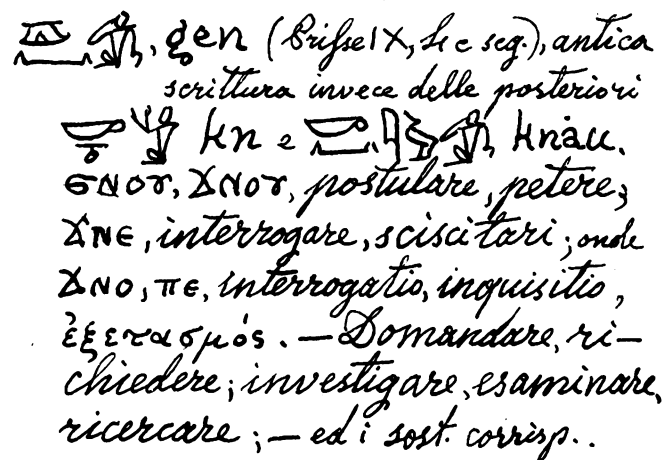 𓎼𓈖𓀁, gen (Prisse IX, 4 e seg.), antica
scrittura invece delle posteriori
kn e knȧu.
ϭⲛⲟⲩ, ϫⲛⲟⲩ, postulare, petere;
ϫⲛⲉ, interrogare, sciscitari; onde
ϫⲛⲟ, ⲡⲉ, interrogatio, inquisitio,
ἐξετασμός. — Domandare, ri-
chiedere; investigare, esaminare,
ricercare; — ed i sost. corrisp..